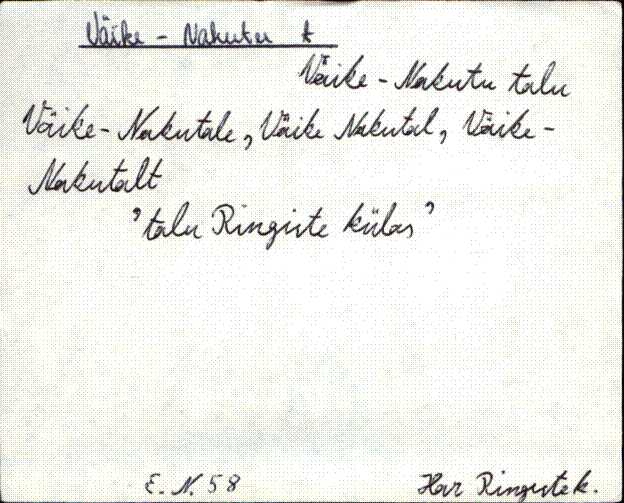 Väike - Nakutu t
Väike - Nakutu talu
Väike - Nakutale, Väike Nakutal, Väike -
Nakutalt
"talu Ringiste külas"
E. N. 58
Har Ringiste k.